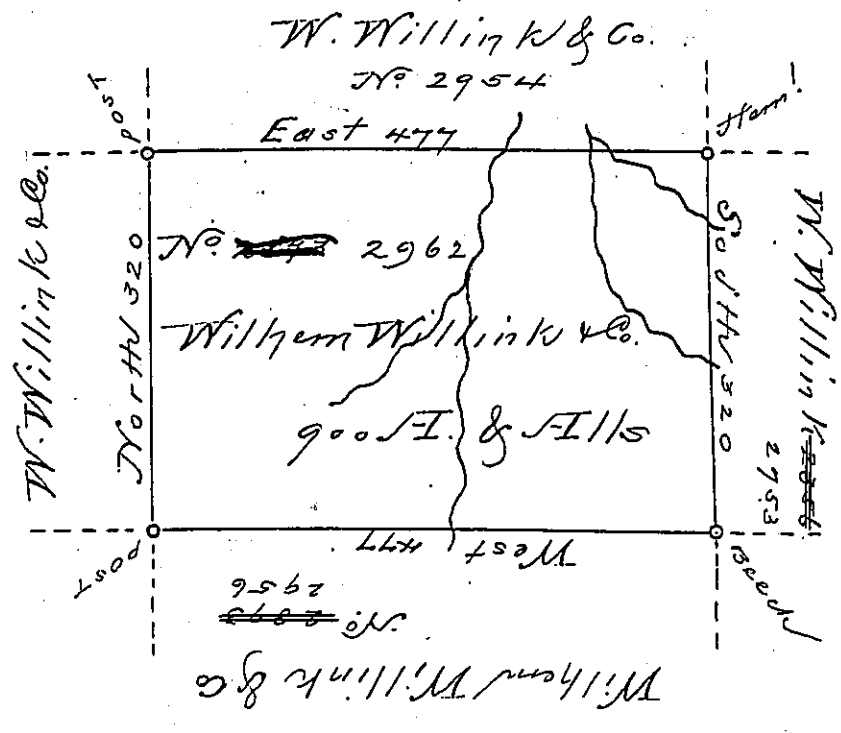 W. Willink & Co.
No. 2954
Post
Hem!
East 477
W. Willink & Co.
North 320
No. 2962
Wilhem Willink & Co.
900 A. & Alls
South 320
W. Willink
2953
Post
West 477
Beech
2956
No.
Wilhem Willink & Co